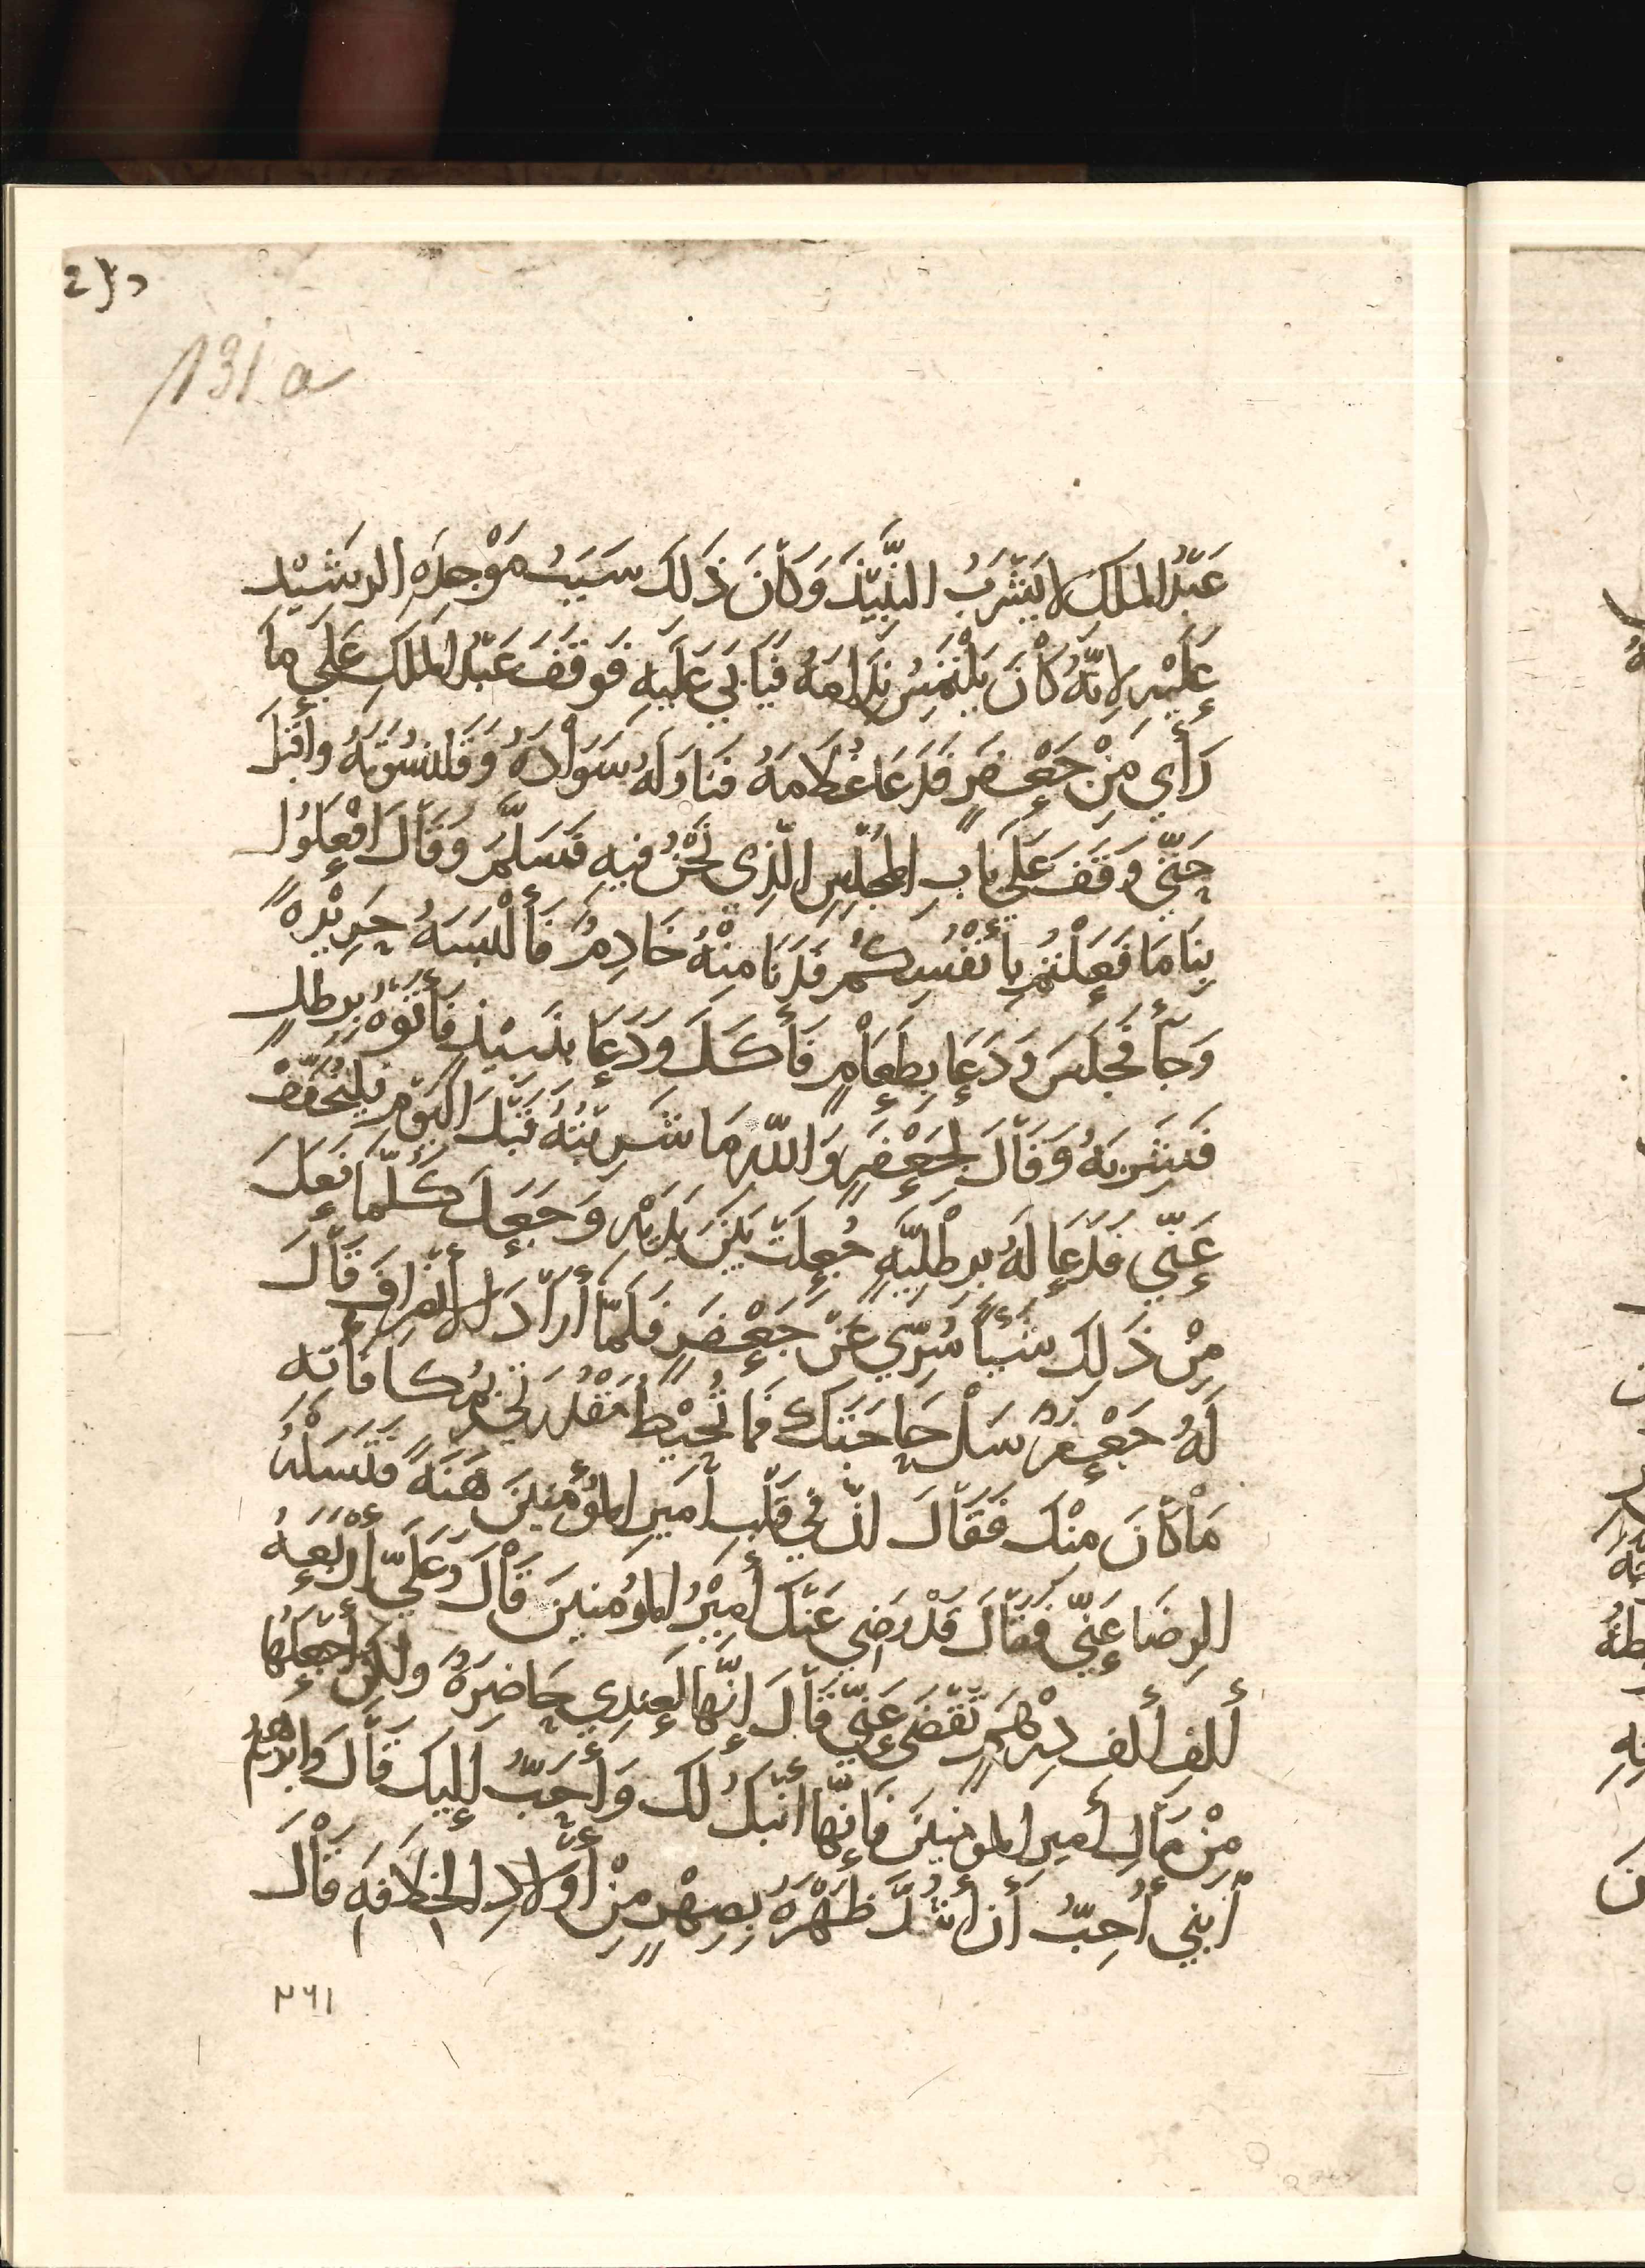 131 a
عَبْدُ المَلِكِ لا يَشْرَبُ النَّبِيْذَ وَكَأنَ ذَلَكَ سَبَبُ مَوْجِدَهِ الرشَيْد
عَلَيْهِ لِانَّهُ كَأنَ يَلْتَمِسُ نِدَامَهُ فَيَأبَي عَلَيهِ فَوقَفَ عَبْدُ المَلِكِ عَلَي مَا
رَأَي مِنْ جَعْفَرٍ فَدَعَا غُلَامَهُ فَنَاوَلَهُ سَوَاْدَهُ وَقَلَنسُوَتَهُ واقْبَلَ
حَتّي وَقَفَ عَلَي بَابِ المجْلِسِ الَّذِي نَحْنُ فِيهِ فَسَلَّمَ وَقَالَ افْعَلُوا
بِنَا مَا فَعَلْتُم بِأنْفُسِكُمْ فَدَنَا مِنْهُ خَادِمٌ فَأَلْبَسَهُ حَرِيْرَةً
وَجَأَ فَجَلَسَ وَدَعَا بِطَعَاْمٍ فَأَكَلَ وَدَعَا بِنَبِيْذٍ فَأَتَوْهُ بِرِطلٍ
فَشَرِبَهُ وَقَاْلَ لِجَعْفَرٍ وَاللهِ مَا شَرِبْتُهُ قَبْلَ اليَوْمِ فَليُخَفَّفْ
عَنّي فَدَعَا لَهُ بِرِطْلِيَّهٍ جُعِلَتْ بَيْنَ يَدَيْهِ وَجَعَلَ كُلَّمَا فَعَلَ
مِنْ ذَلِكَ شَيْأً سُرِّيَ عَنْ جَعْفَرٍ فَلَمّا أَرَاْدَ الأنْصِرافَ قَاْلَ
لَهُ جَعْفَرٌ سَلْ حَاجَتَكَ فَمَا تُحِيْطُ مَقْدِرَتِي بِمُكافَأتِهِ
مَاْ كَاْنَ مِنْكَ فَقَاْلَ انَّ فِي قَلْبِ أَمِيرِ المُؤْمِنِينَ هَنَةً فَتَسَلْهُ
الرِضَا عَنِّي فَقَاْلَ قَدْ رَضِيَ عَنْكَ أَمِيْرُ المُوُمِنينَ قَاْلَ وَعَلَيّ أرْبَعِهُ
أَلفِ أَلفِ دِرْهَمٍ تُقْضَي عَنِّي قَاْلَ إِنَّها لَعِندِي حَاضِرَهٌ ولَكِنْ أجْعَلُها
مِنْ مَاْلِ أَمِيرِ المومِنِينَ فَإنَّها أَنْبَلُ لَكَ وَأَحَبُّ إِلَيكَ قَاْلَ وَابْرَهِيمُ
أبْنِي أُحِبُّ أَن أَشُدَّ ظَهْرَهُ بِصِهْرٍ مِنْ أَوْلَادِ الخِلَافَهِ قَاْلَ
٢٦١